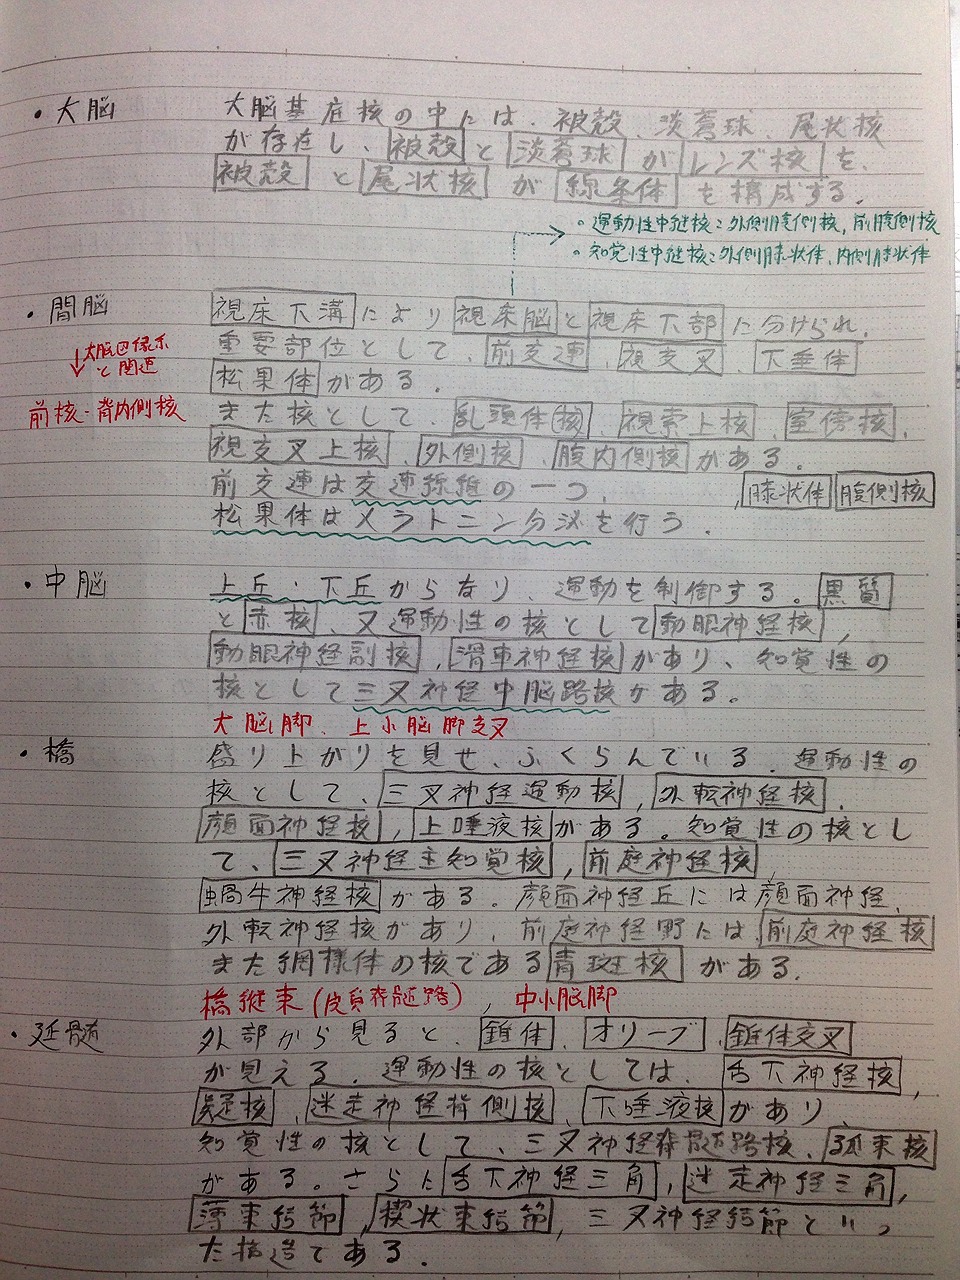 ・大脳 大脳基底核の中には、被殻、淡蒼球、尾状核
が存在し、被殻と淡蒼球がレンズ核を、
被殻と尾状核が線条体を構成する。
。運動性中継核：外側腹側核，前腹側核
。知覚性中継核：外側膝状体、内側膝状体
・間脳 視床下溝により視床脳と視床下部に分けられ、
重要部位として、前交連、視交叉、下垂体
大脳辺縁系
と関連
松果体がある。
前核・背内側核
また核として、乳頭体核、視索上核、室傍核、
視交叉上核、外側核、腹内側核がある。
前交連は交連線維の一つ、
膝状体 腹側核
松果体はメラトニン分泌を行う。
・中脳 上丘・下丘からなり、運動を制御する。黒質
と赤核、又運動性の核として動眼神経核，
動眼神経副核，滑車神経核があり、知覚性の
核として三叉神経中脳路核がある。
大脳脚、上小脳脚交叉
・橋 盛り上がりを見せ、ふくらんでいる。運動性の
核として、三叉神経運動核，外転神経核、
顔面神経核，上唾液核がある。知覚性の核とし
て、三叉神経主知覚核，前庭神経核
蝸牛神経核がある。顔面神経丘には顔面神経、
外転神経核があり、前庭神経野には、前庭神経核
また網様体の核である青斑核がある。
橋縦束(皮質脊髄路)，中小脳脚
・延髄 外部から見ると、錐体、オリーブ、錐体交叉
が見える。運動性の核としては、舌下神経核、
疑核、迷走神経背側核、下唾液核があり、
知覚性の核として、三叉神経脊髄路核、孤束核
がある。さらに舌下神経三角，迷走神経三角，
薄束結節，楔状束結節，三叉神経結節といっ
た構造である。